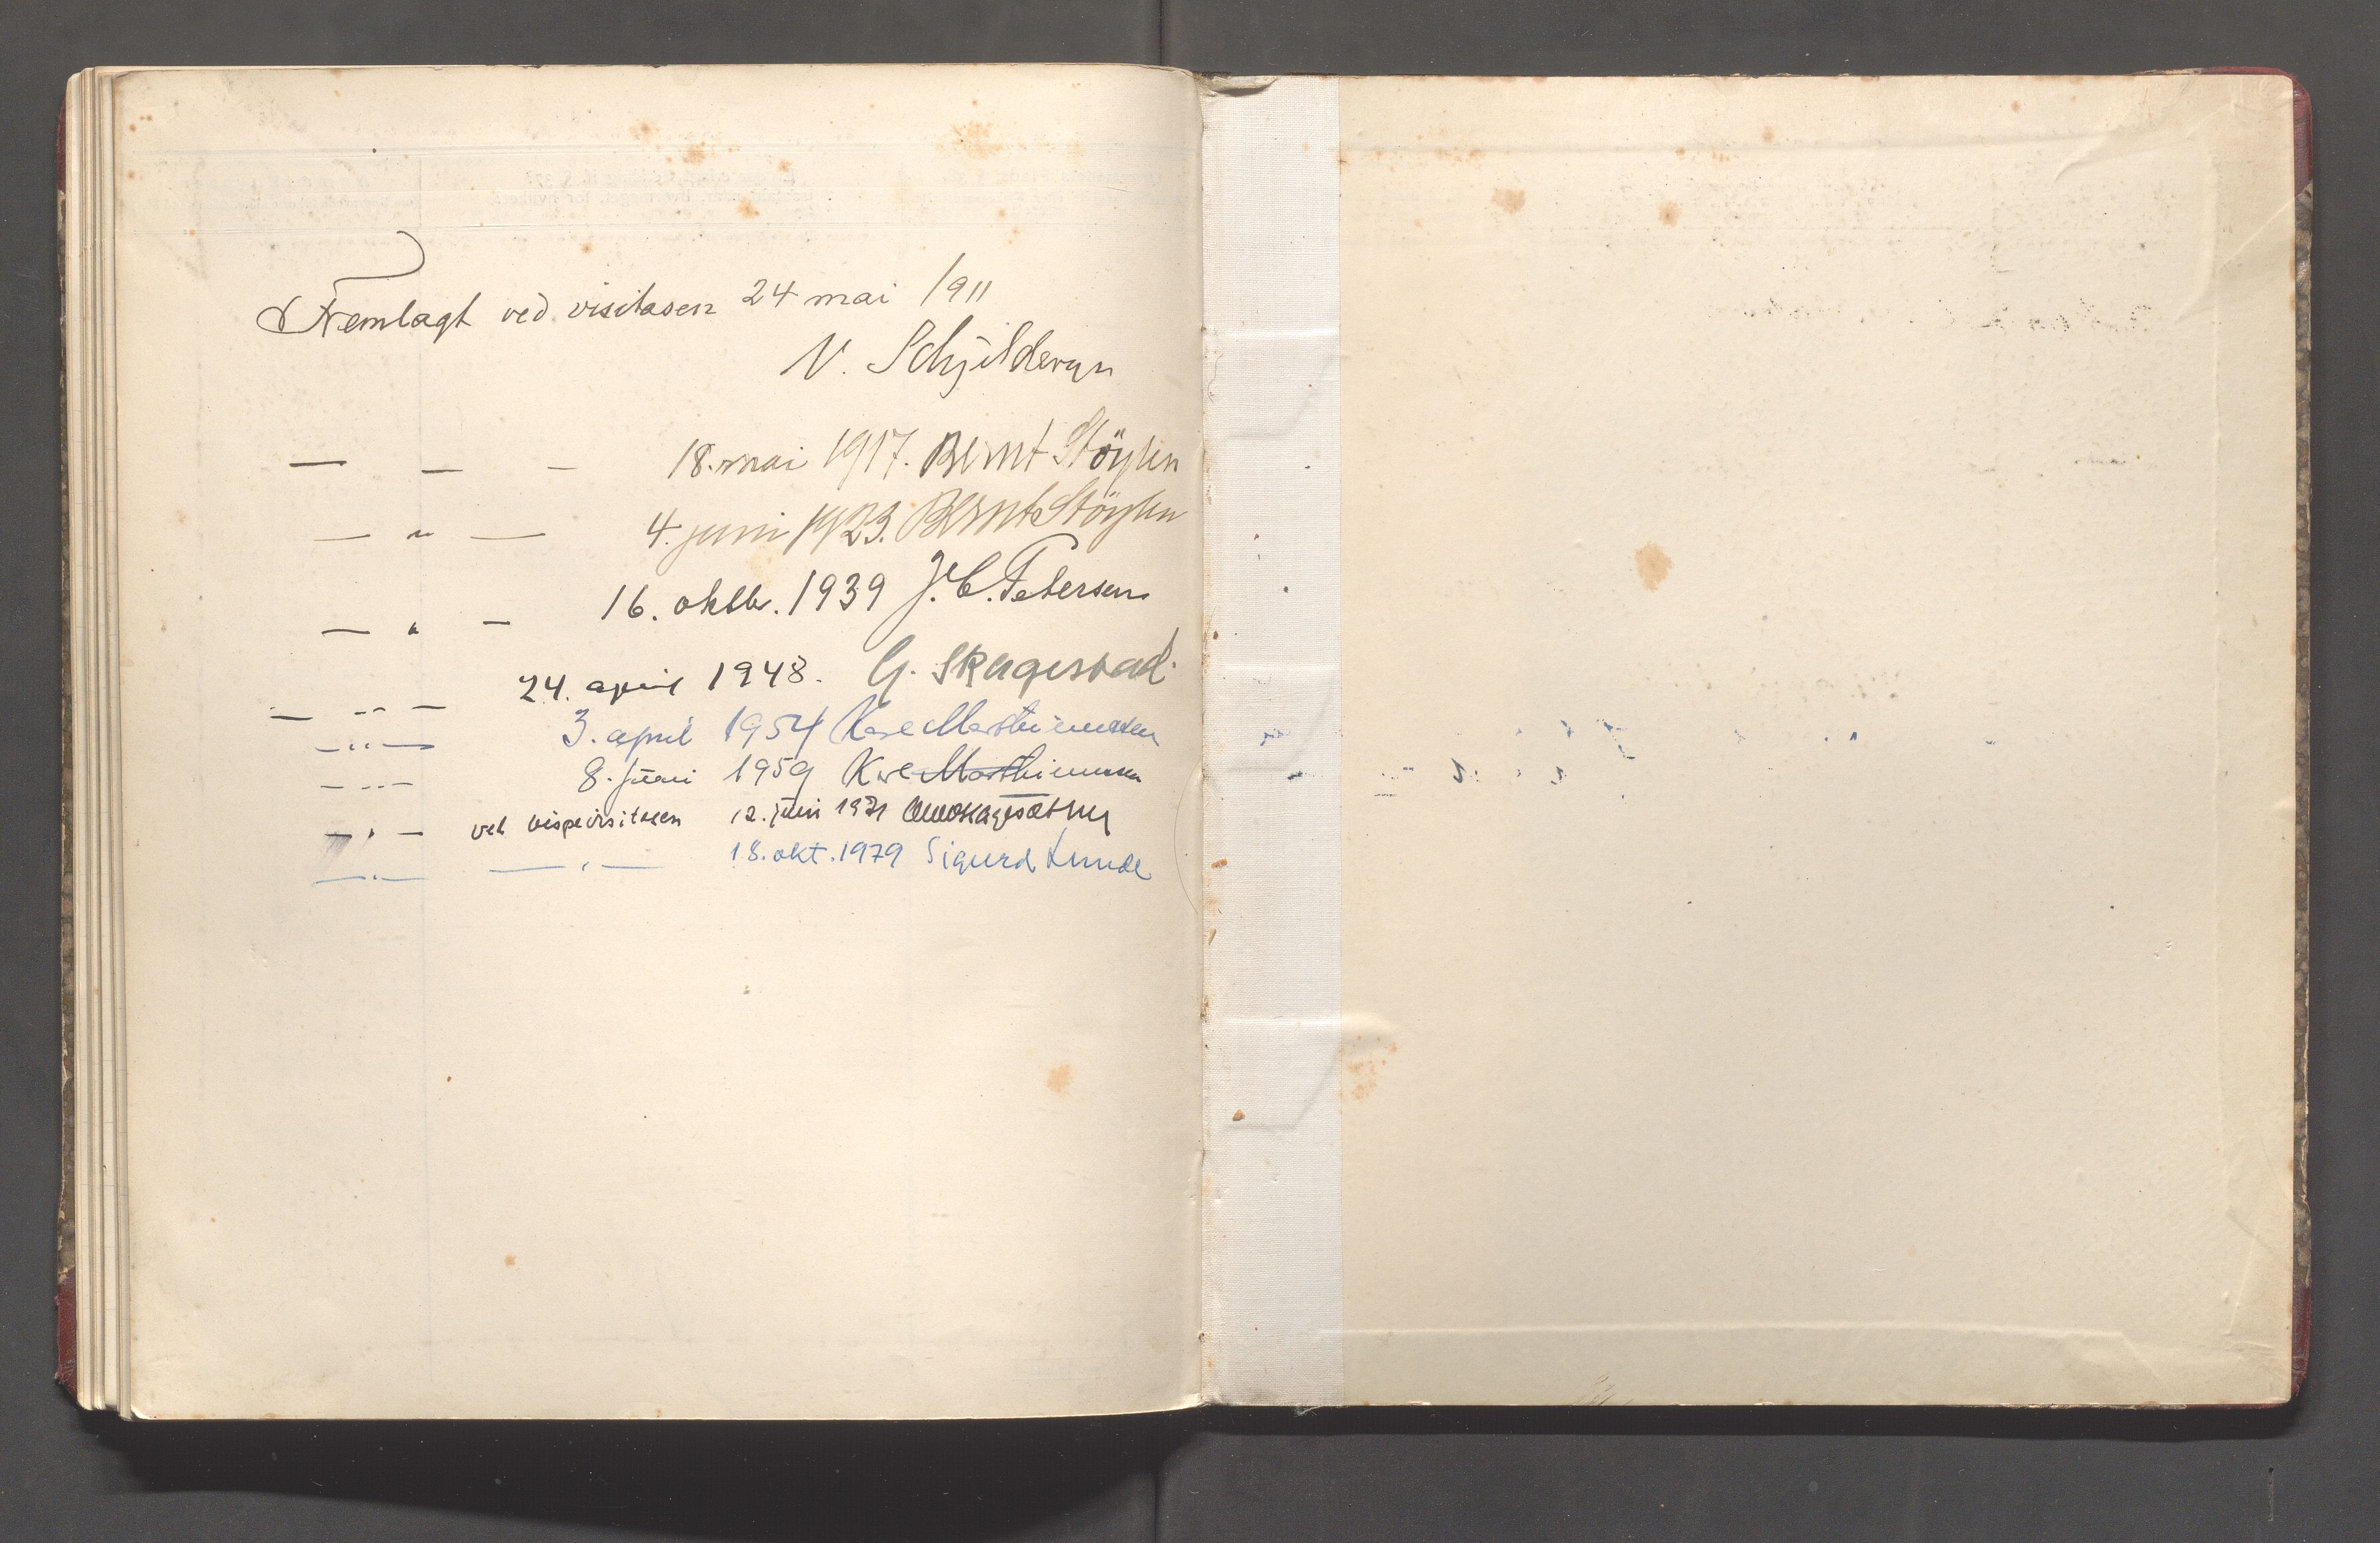 Fremlagt ved visitasen 24 mai 1911
N. Schjelderup
— — — 18. mai 1917. Bernt Støylen
— " — 4. juni 1923. Bernt Støylen
— " — 16. oktbr. 1939 J. C. Petersen
— " — 24. april 1948. G. Skagestad.
— " — 3. april 1954 Karl Marthinussen
— " — 8. juni 1959 Karl Marthinussen
— " — ved bispevisitasen 12. juni 1971
— " — — " — 18. okt. 1979 Sigurd Lunde